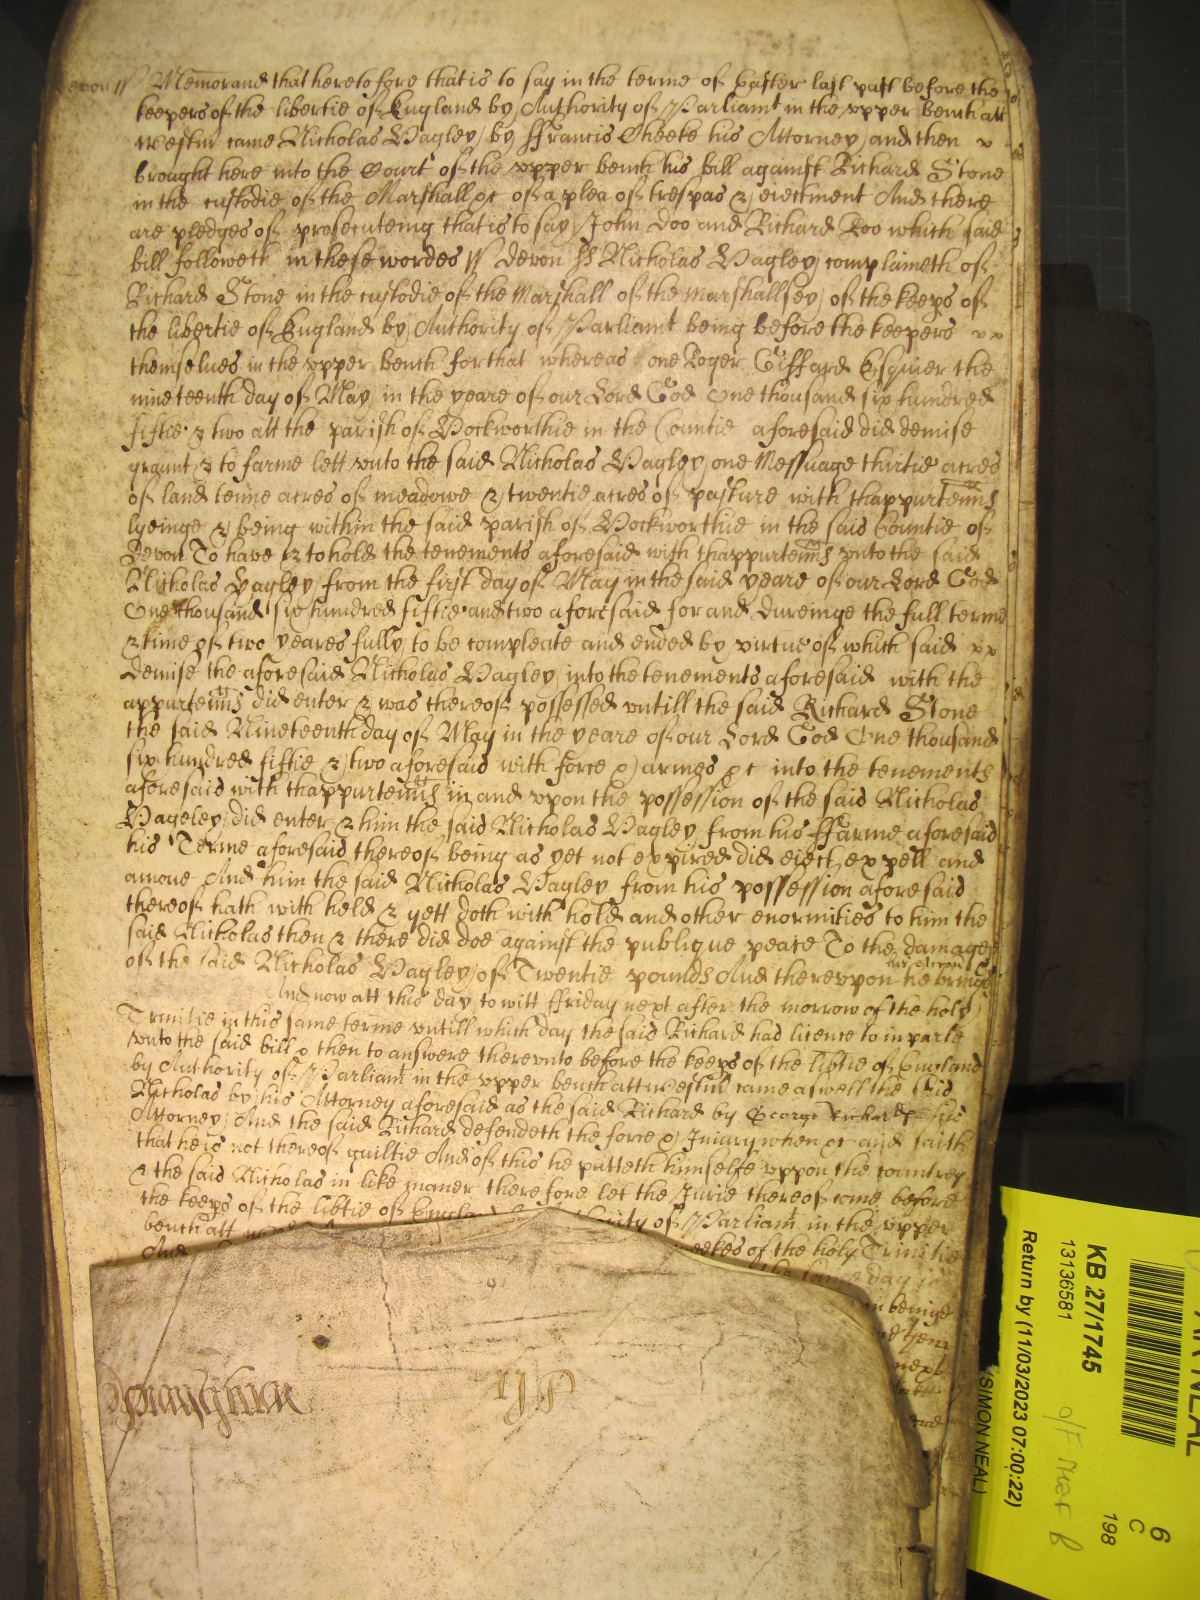 Devon ss Memorand that heretofore that is to say in the terme of Easter last past before the
keepers of the libertie of England by Authority of Parliamt in the vpper bench att
Westm came Nicholas Vagley by ffrancis Cheeke his Attorney and then
brought here into the Court of the vpper bench his bill against Richard Stone
in the custodie of the Marshall &c of a plea of trespas & eiectment And there
are pledges of prosecuteing that is to say John Doo and Richard Roo which said
bill followeth in these wordes ss Devon ss Nicholas Vagley complaineth of
Richard Stone in the custodie of the Marshall of the Marshallsey of the keeps of
the libertie of England by Authority of Parliamt being before the keepers
themselues in the vpper bench for that whereas one Roger Giffard Esquier the
nineteenth day of May in the yeare of our Lord God One thousand six hundred
fiftie & two att the parish of Vockworthie in the Countie aforesaid did demise
graunt & to farme lett vnto the said Nicholas Vagley one Messuage thirtie acres
of land tenne acres of meadowe & twentie acres of pasture with thappurtennts
lyeinge & being within the said parish of Vockworthie in the said Countie of
Devon To have & to hold the tenements aforesaid with thappurtennts vnto the said
Nicholas Vagley from the first day of May in the said yeare of our Lord God
One thousand six hundred fiftie and two aforesaid for and dureinge the full terme
& time of two yeares fully to be compleate and ended by virtue of which said
demise the aforesaid Nicholas Vagley into the tenements aforesaid with the
appurtennts did enter & was thereof possessed vntill the said Richard Stone
the said Nineteenth day of May in the yeare of our Lord God One thousand
six hundred fiftie & two aforesaid with force & armes &c into the tenements
aforesaid with thappurtennts in and vpon the possession of the said Nicholas
Vageley did enter & him the said Nicholas Vagley from his ffarme aforesaid
his Terme aforesaid thereof being as yet not expired did eiect expell and
amove And him the said Nicholas Vagley from his possession aforesaid
thereof hath with held & yett doth with hold and other enormities to him the
said Nicholas then & there did doe against the publique peace To the damage
of the said Nicholas Vagley of Twentie pounds And therevpon he brings
And now att this day to witt ffriday next after the morrow of the holy
Trinitie in this same terme vntill which day the said Richard had licence to imparle
vnto the said bill & then to answere therevnto before the keeps of the libtie of England
by Authority of Parliamt in the vpper bench att Westm came aswell the said
Nicholas by his Attorney aforesaid as the said Richard by George his
Attorney And the said Richard defendeth the force & Iniury when &c and saith
that he is not thereof guiltie And of this he putteth himselfe vppon the countrey
& the said Nicholas in like maner therefore let the Jurie thereof come before
the keeps of the libtie of England by Authority of Parliamt in the vpper
bench att weekes of the holy Trinitie
And the same day is
beinge
next
KB 27/1745
13136581
Return by (11/03/2023 07:00:22)
(SIMON NEAL)
6
C
198